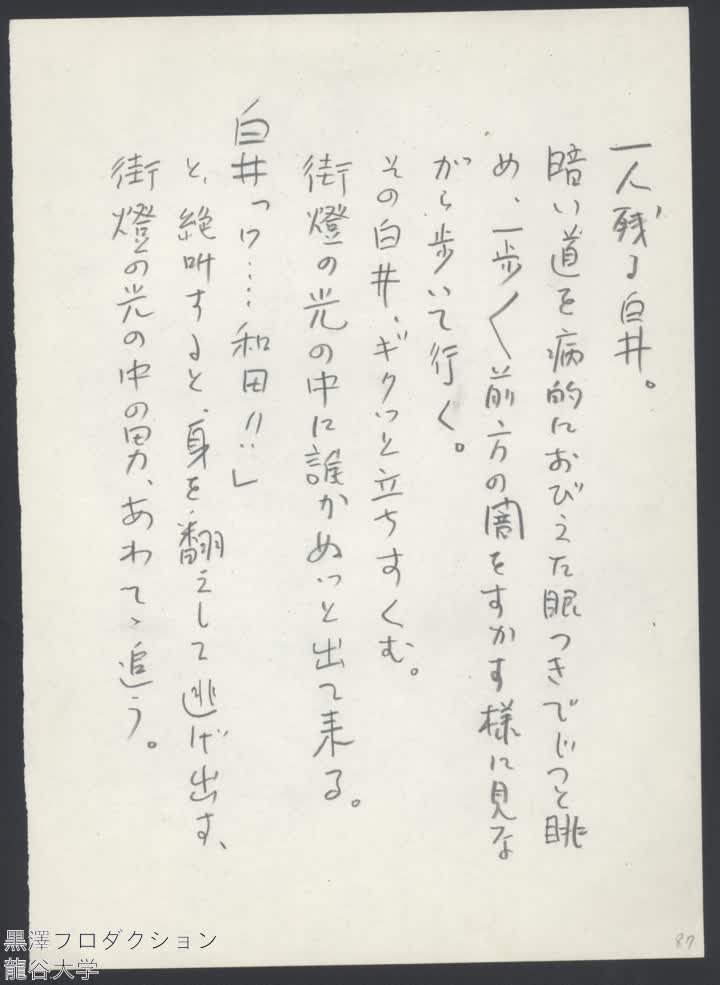 一人残る白井。
暗い道を病的におびえた眼つきでじっと眺
め、一歩〱前方の闇をすかす様に見な
がら歩いて行く。
その白井、ギクッと立ちすくむ。
街燈の光の中に誰かぬっと出て来る。
白井「ワ……和田!!」
と、絶叫すると、身を翻えして逃げ出す、
街燈の光の中の男、あわてゝ追う。
87
黒澤プロダクション
龍谷大学